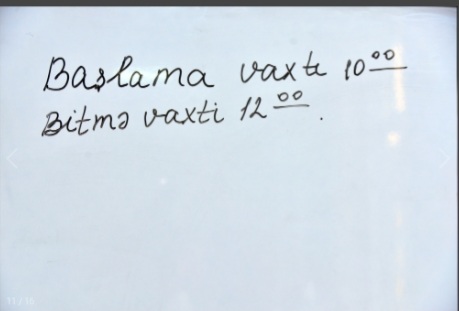 Başlama vaxtı 10⁰⁰
Bitmə vaxti 12⁰⁰.
11 / 15